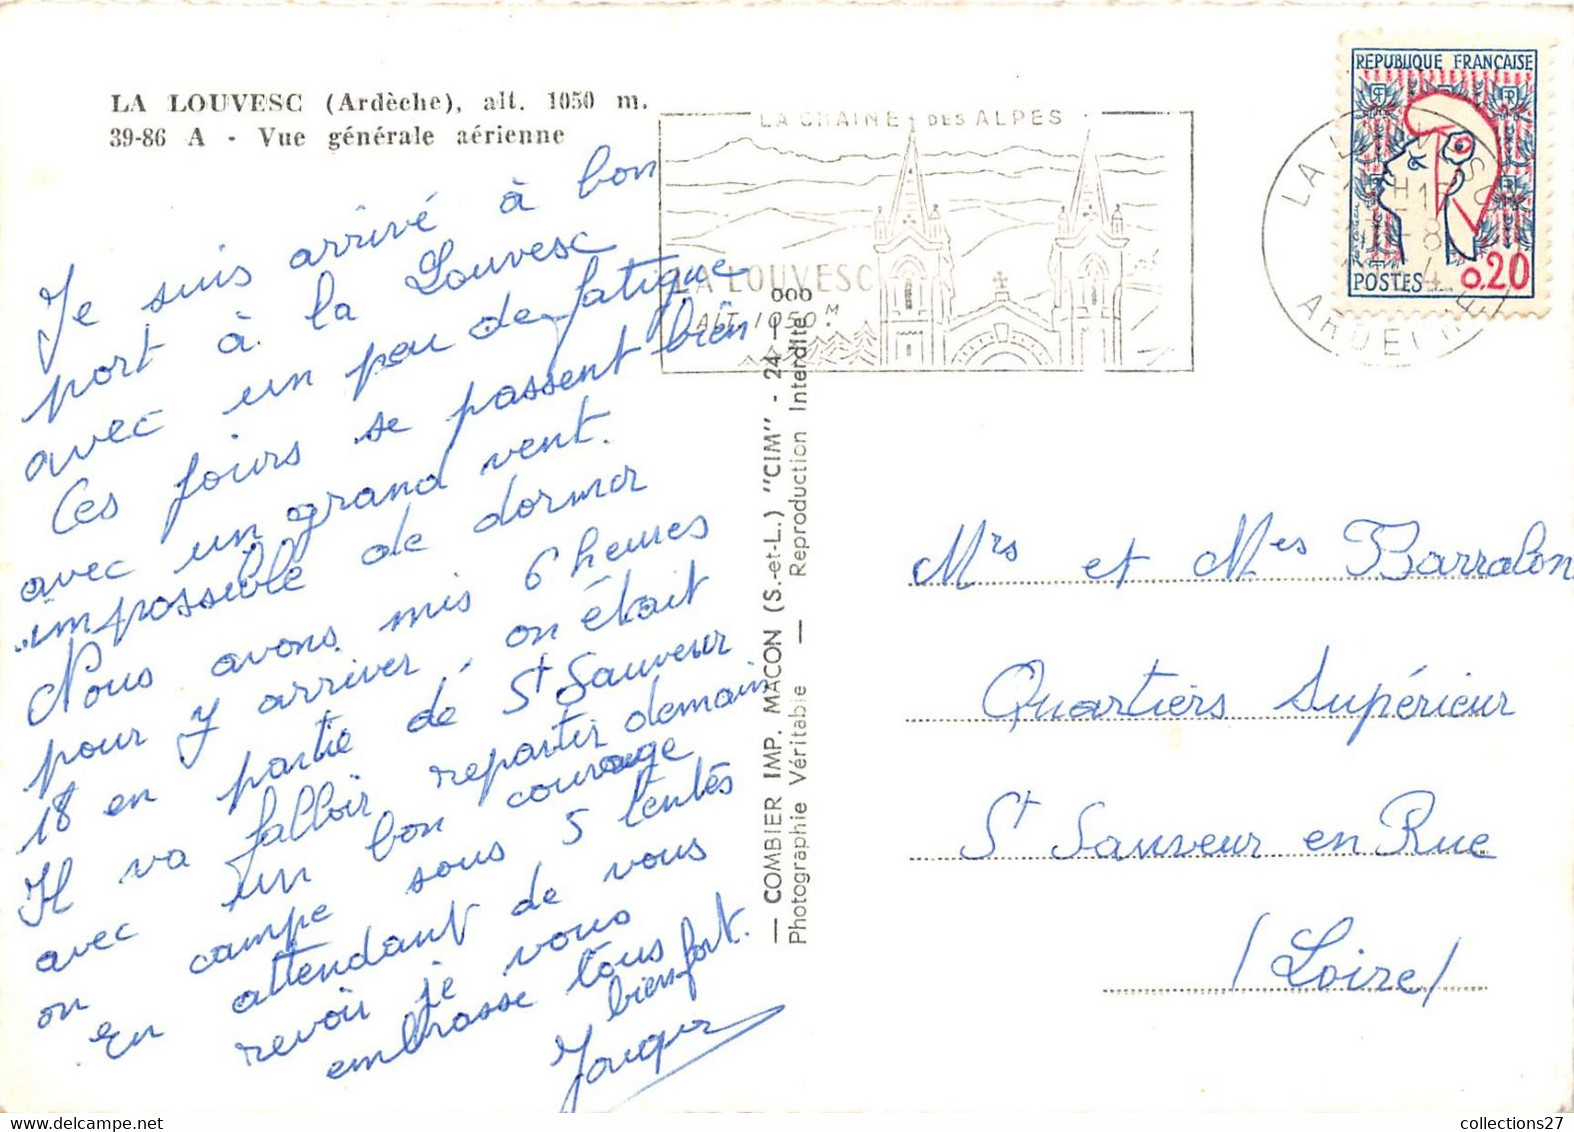 LA LOUVESC (Ardèche), alt. 1050 m.
39-86 A - Vue générale aérienne
Je suis arrivé à bon
port à la Louvesc
avec un peu de fatigue
Ces jours se passent bien
avec un grand vent.
impossible de dormir
Nous avons mis 6 heures
pour y arriver, on était
18 en partie de St Sauveur
Il va falloir repartir demain
avec un bon courage
on campe sous 5 tentes
En attendant de vous
revoir je vous
embrasse tous
bien fort.
LA CHAINE DES ALPES
LA LOUVESC
ALT. 1050 M
REPUBLIQUE FRANÇAISE
POSTES 0,20
LA LOUVESC
ARDECHE
— COMBIER IMP. MACON (S.-et-L.) "CIM" - 24 — 000
Photographie Véritable — Reproduction Interdite
Mrs et Mes Barralon
Quartiers Supérieur
St Sauveur en Rue
(Loire)
collections27